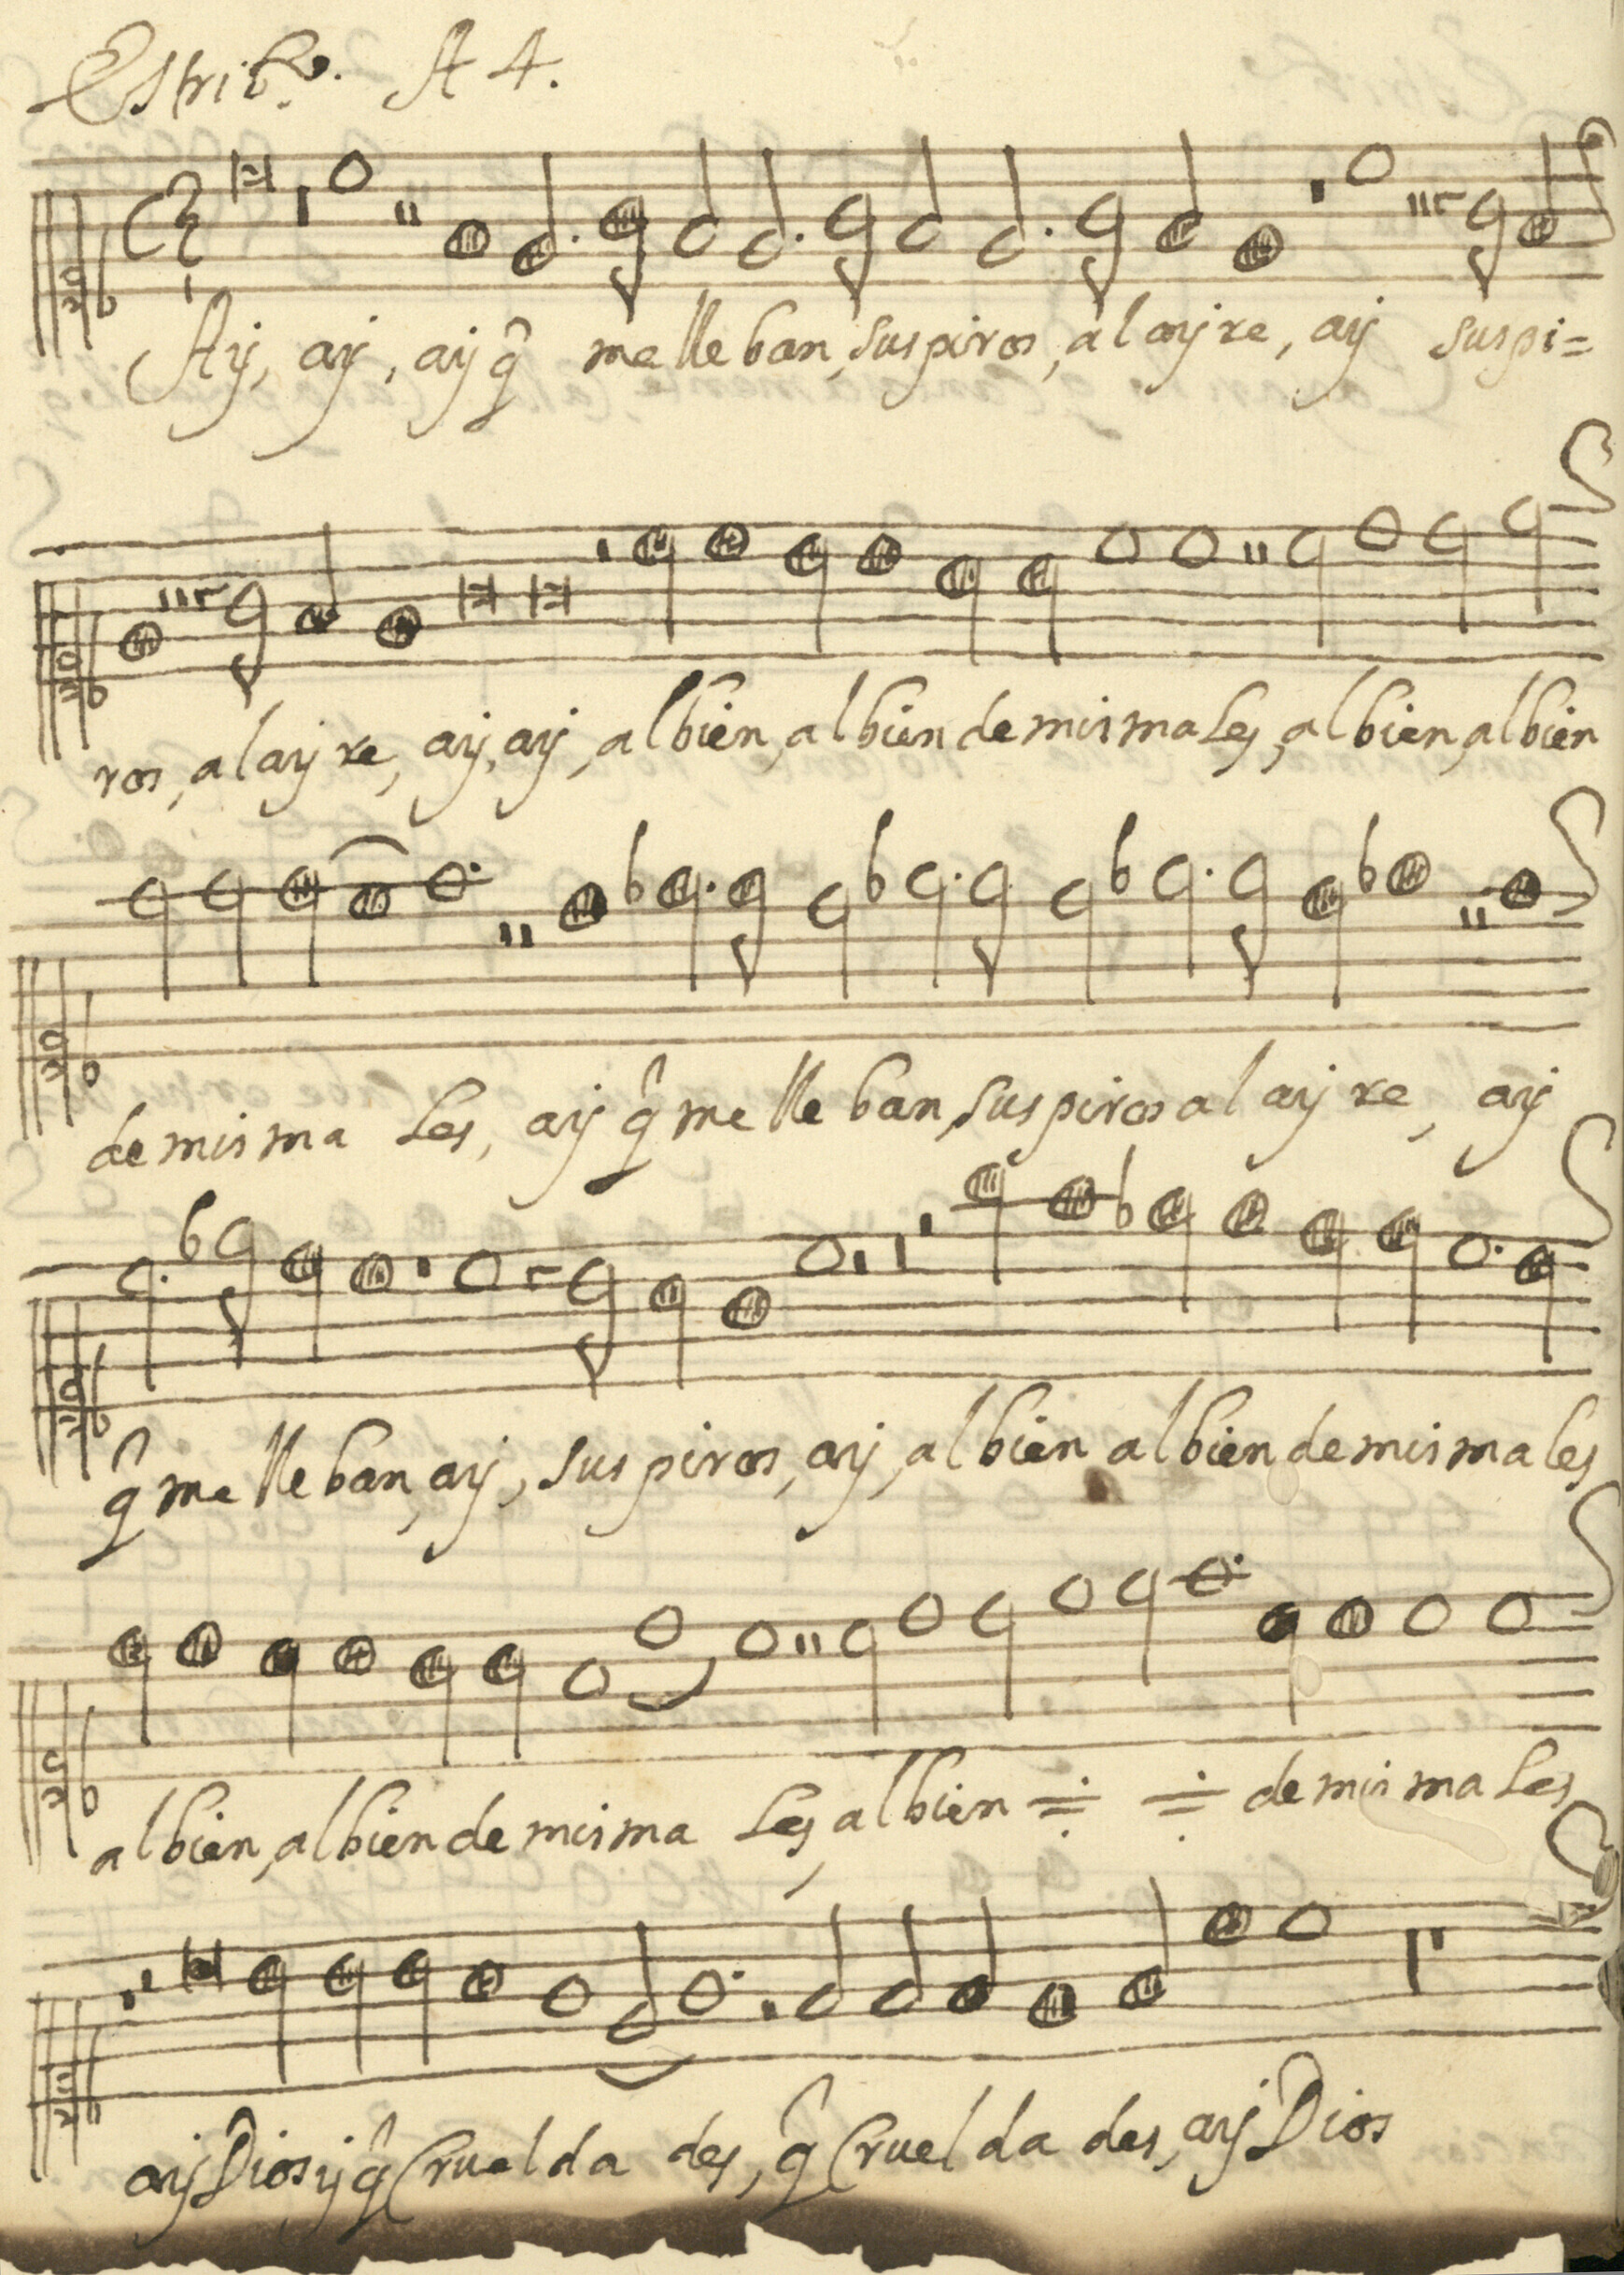 Estribo. A 4.
Ay, ay, ay q̂ me lleban, suspiros, al ayre, ay suspi=
ros, al ayre, ay, ay, al bien, al bien de mis males, al bien, al bien
de mis males, ay q̂ me lleban, suspiros al ayre, ay
q̂ me lleban, ay, suspiros, ay, al bien al bien de mis males
al bien, al bien de mis males, al bien de mis males
ay Dios y q̂ Crueldades, q̂ Crueldades, ay Dios